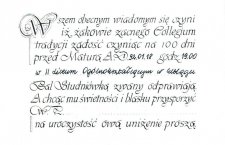 Wszem obecnym wiadomym się czyni
iż zakowie zacnego Collegium
tradycji zadość czyniąc na 100 dni
przed Maturą A.D. 24.01.18 godz. 19.00
w II Liceum Ogólnokształcącym w
Bal Studniówką zwany odprawiają
A chcąc mu świetności i blasku przysporzyć
W. P.
na uroczystość ową uniżenie proszą